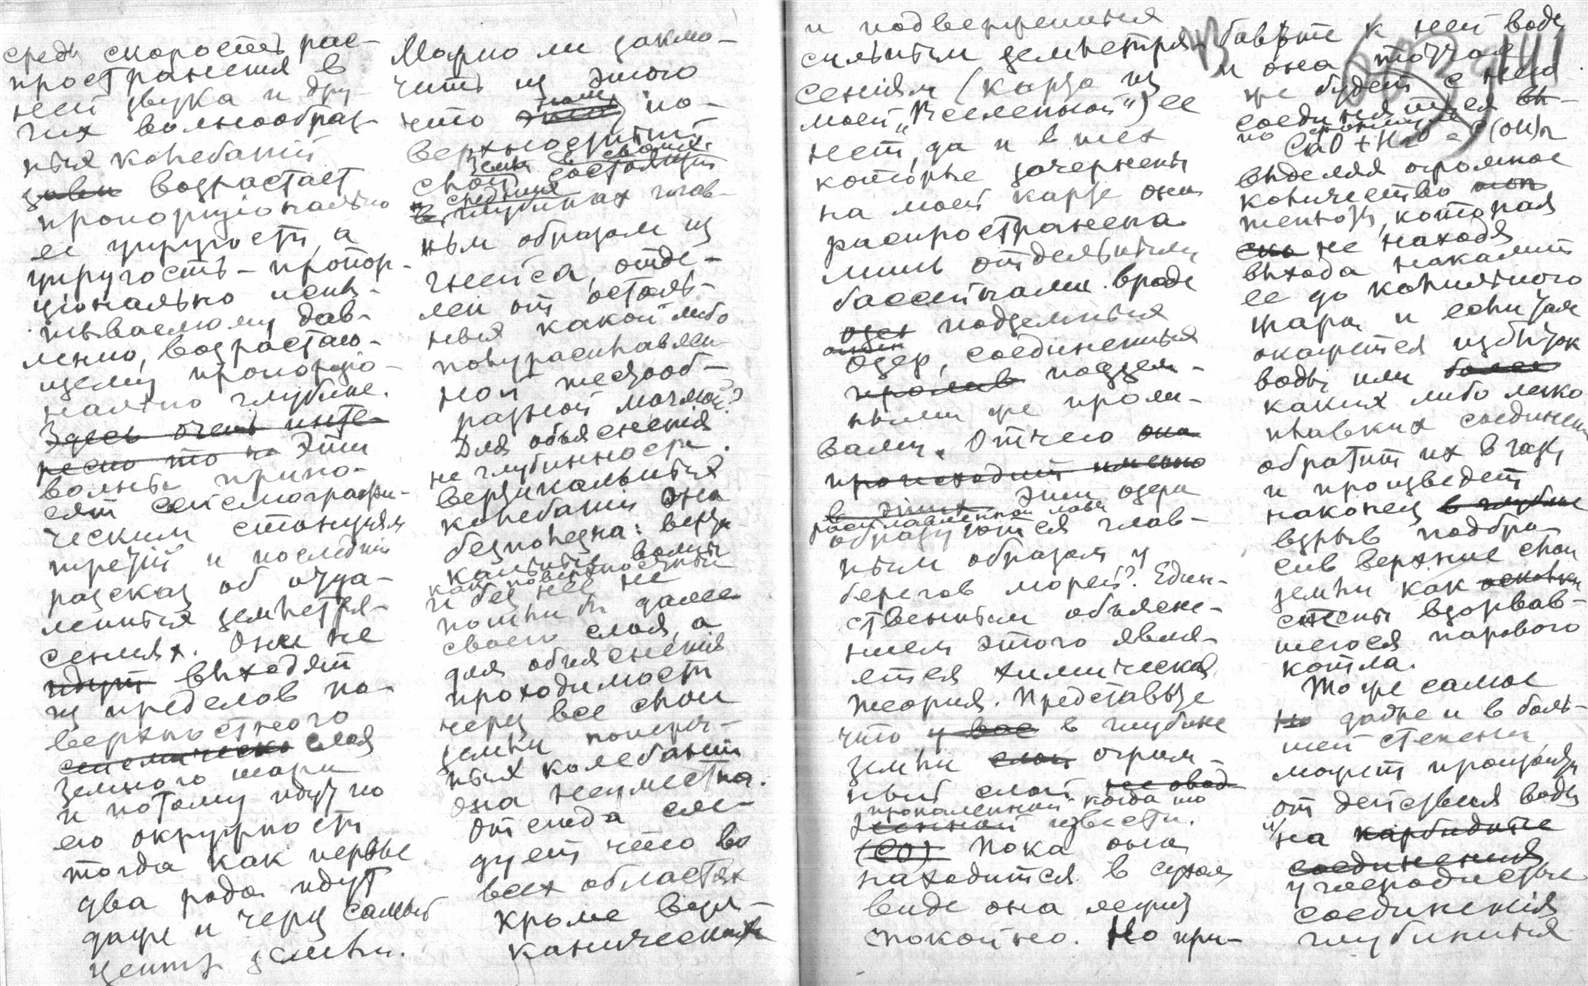 средѣ скорость рас-
пространения в
ней звука и дру-
гих волнообраз-
ных колебаній
возрастает
пропорціонально
ее упругости, а
упругость – пропор-
ціонально испы-
тываемому дав-
лению, возрастаю-
щему пропорціо-
нально глубине.
Здесь очень инте-
ресно то Эти
волны прино-
сят сейсмографи-
ческим станціям
третій и последній
разсказ об отда-
ленных землетря-
сениях. Они не
идут выходят
из пределов по-
верхностного
слоя
земного шара
и потому идут по
его окружности
тогда как первые
два рода идут
даже и через самый
центр земли.
Можно ли заклю-
чить из этого
что по-
верхностный
слой земли
состоящій
в глубинах глав-
ным образом из
гнейса, отде-
лен от осталь-
ных какой либо
полурасплавлен-
ной тестооб-
разной магмой?
Для объяснения
не глубинности
вертикальных
колебаній она
безполезна: верти-
кальные волны
как поверхностные
и без нее не
пошли б далее
своего слоя, а
для объяснения
проходимости
через все слои
земли попереч-
ных колебаній
она неуместна.
Отсюда сле-
дует что во
всех областях
кроме вулка-
нических
и подверженных
сильным землетря-
сениям (карта из
моей „Вселенной“) ее
нет, да и в тех
которые зачернены
на моей карте она
распространена
лишь отдельными
бассейнами вроде
озер подземных
озер, соединенных
пролив подзем-
ными же проли-
вами. Отчего она
происходит именно
в этих Эти озера
расплавленной лавы
образуются глав-
ным образом у
берегов морей? Един-
ственным объясне-
нием этого явля-
ется химическая
теория. Представьте
что у вас в глубине
земли слои огром-
ный слой
прокаленной когда то
извести.
(СО) Пока она
находится в сухом
виде она лежит
спокойно. Но при-
бавьте к ней воды
и она тотчас
же будет с нею
соединяться
по формуле
CaO + H2O = C(OH)2
выделяя огромное
количество теп
теплоты, которая
она не находя
выхода накалит
ее до
жара и если там
окажется избыток
воды или более
каких либо легко
плавких соединений
обратит их в газы
и произведет
наконец в глубине
взрыв подбро
сив верхние слои
земли как
взорвав-
шегося парового
котла.
То же самое
но даже и в боль-
шей степени
может произойти
от действия воды
и на карбидные
соединения
углеродистые
соединения
глубинныя